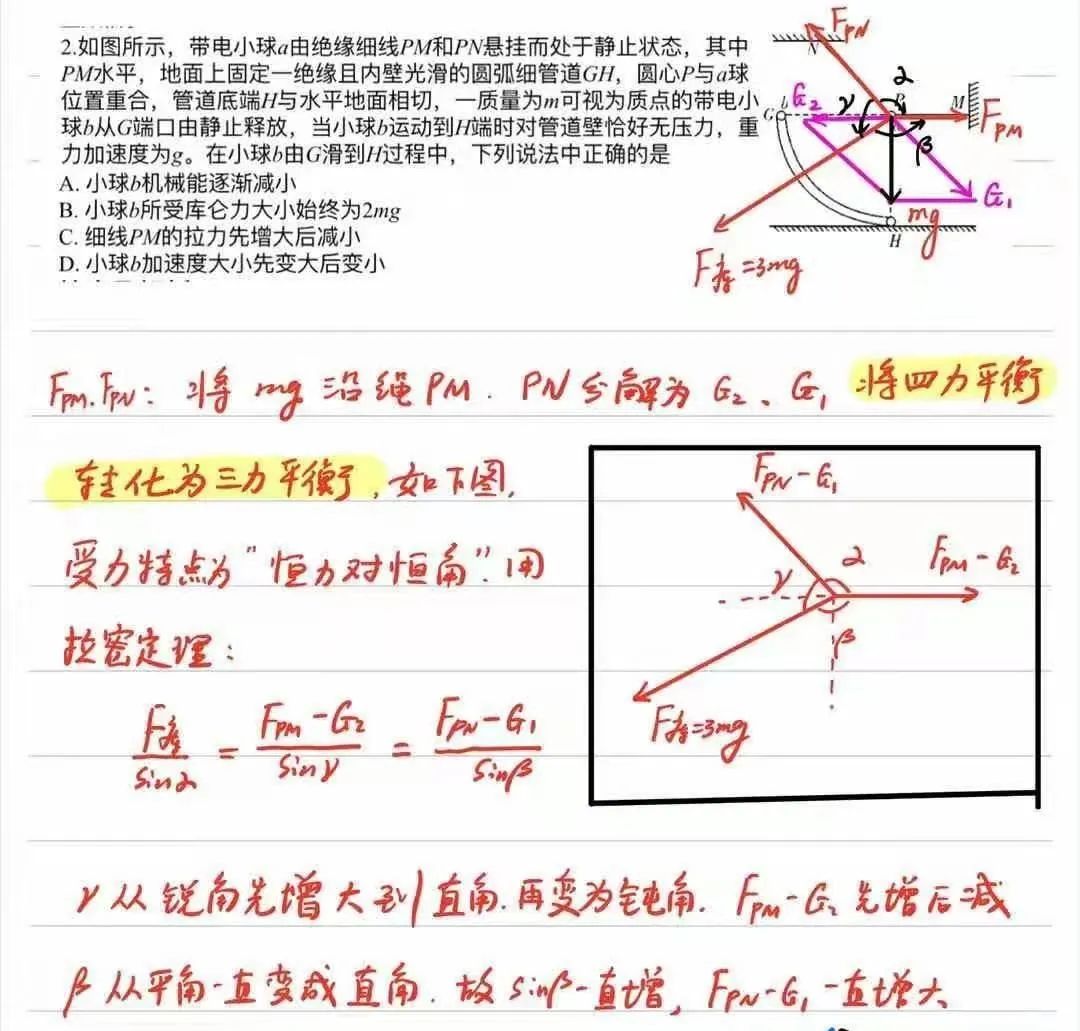 2.如图所示，带电小球a由绝缘细线PM和PN悬挂而处于静止状态，其中
PM水平，地面上固定一绝缘且内壁光滑的圆弧细管道GH，圆心P与a球
位置重合，管道底端H与水平地面相切，一质量为m可视为质点的带电小
球b从G端口由静止释放，当小球b运动到H端时对管道壁恰好无压力，重
力加速度为g。在小球b由G滑到H过程中，下列说法中正确的是
A. 小球b机械能逐渐减小
B. 小球b所受库仑力大小始终为2mg
C. 细线PM的拉力先增大后减小
D. 小球b加速度大小先变大后变小
F_PN
N
α
G₂
γ
P
M
G
F_PM
β
G₁
mg
H
F库=3mg
F_PM.F_PN：将 mg 沿绳PM．PN分解为 G₂、G₁ 将四力平衡
转化为三力平衡，如下图，
受力特点为“恒力对恒角”．用
拉密定理：
F库/sinα = (F_PM-G₂)/sinγ = (F_PN-G₁)/sinβ
F_PN-G₁
α
F_PM-G₂
γ
β
F库=3mg
γ从锐角先增大到直角．再变为钝角．F_PM-G₂先增后减
β从平角一直变成直角．故sinβ一直增，F_PN-G₁一直增大